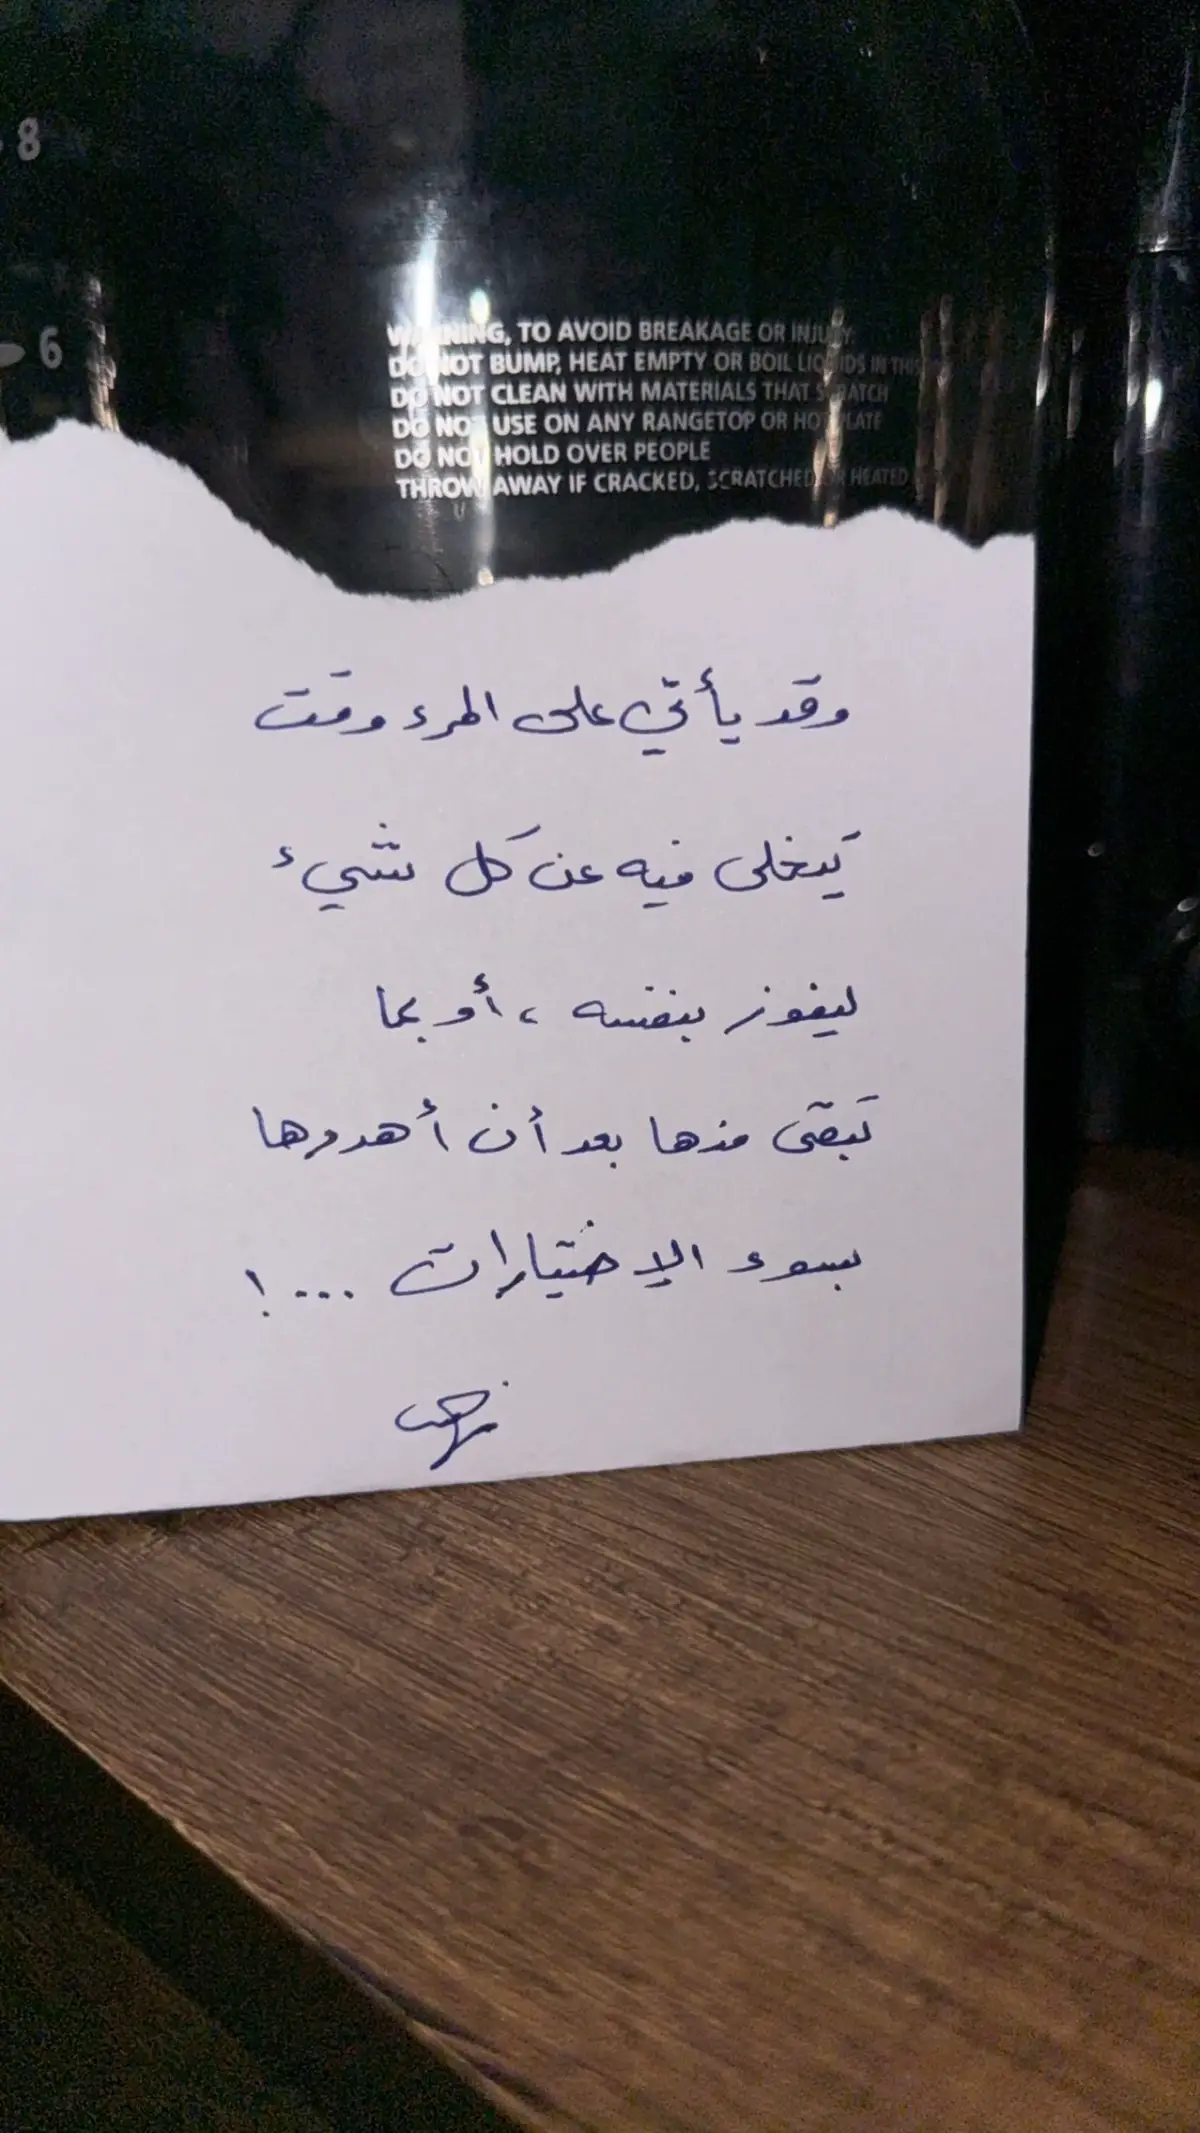 8
6
WARNING, TO AVOID BREAKAGE OR INJURY:
DO NOT BUMP, HEAT EMPTY OR BOIL LIQUIDS IN THIS
DO NOT CLEAN WITH MATERIALS THAT SCRATCH
DO NOT USE ON ANY RANGETOP OR HOTPLATE
DO NOT HOLD OVER PEOPLE
THROW AWAY IF CRACKED, SCRATCHED OR HEATED
وقد يأتي على المرء وقت
يتخلى فيه عن كل شيء
ليفوز بنفسه ، أو بما
تبقى منها بعد أن أهدرها
بسوء الإختيارات ... !